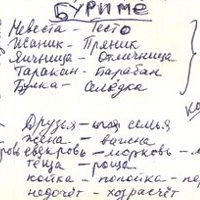 БУРИМЕ
Невеста – Тесто
Жаник – Пряник
Яичница – Отличница
Таракан – барабан
Булка – Селёдка
Друзья – семья
жена – важна
свекровь – морковь –
тёща – роща
койка – попойка –
недочёт – хозрасчёт